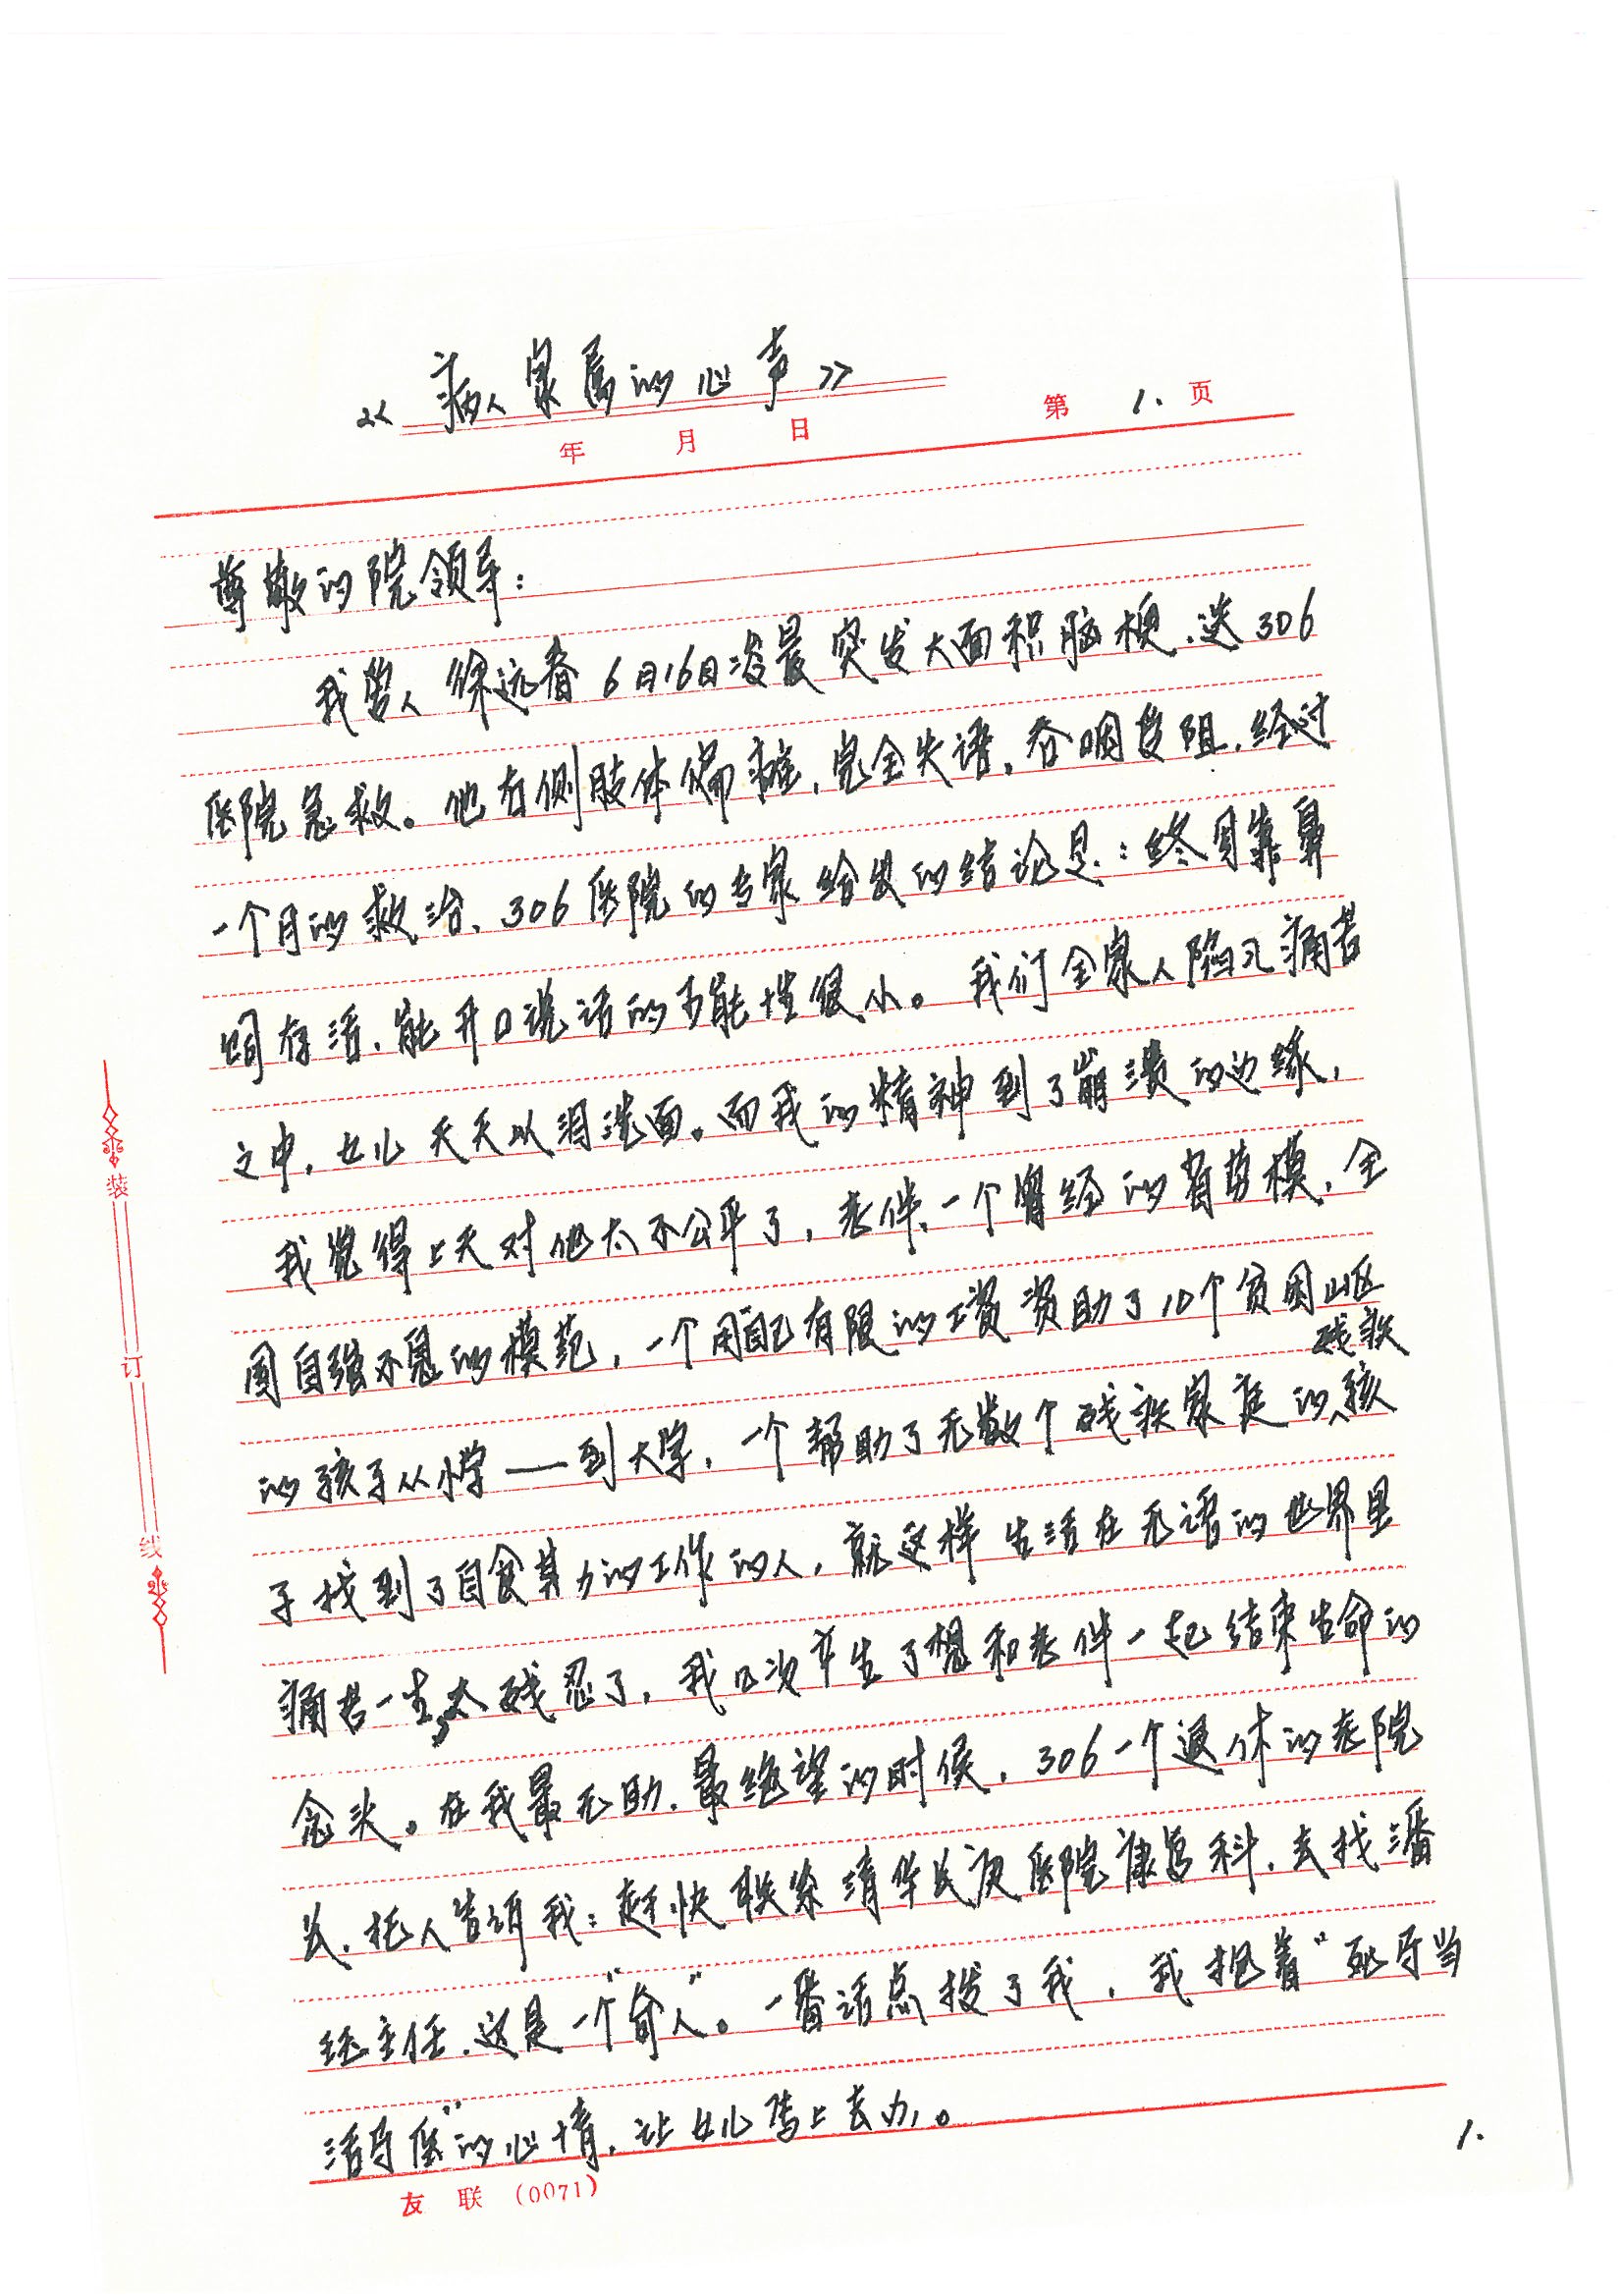 《病人家属的心声》
年 月 日 第 1. 页
尊敬的院领导：
我爱人徐远春6月16日凌晨突发大面积脑梗，送306
医院急救。他右侧肢体偏瘫，完全失语，吞咽受阻，经过
一个月的救治，306医院的专家给出的结论是：终身靠鼻
饲存活，能开口说话的可能性很小。我们全家人陷入痛苦
之中，女儿天天以泪洗面。而我的精神到了崩溃的边缘，
我觉得上天对他太不公平了，老伴，一个曾经的省劳模，全
国自强不息的模范，一个用自己有限的工资资助了10个贫困山区
的孩子从小学——到大学，一个帮助了无数个残疾家庭的残疾孩
子找到了自食其力的工作的人，就这样生活在无语的世界里
痛苦一生，太残忍了，我几次产生了想和老伴一起结束生命的
念头。在我最无助，最绝望的时候，306一个退休的老院
长，托人告诉我：赶快联系清华长庚医院康复科，去找潘
钰主任，这是一个“奇人”。一番话点拨了我，我抱着“死马当
活马医”的心情，让女儿马上去办。
1.
友联(0071)
装
订
线